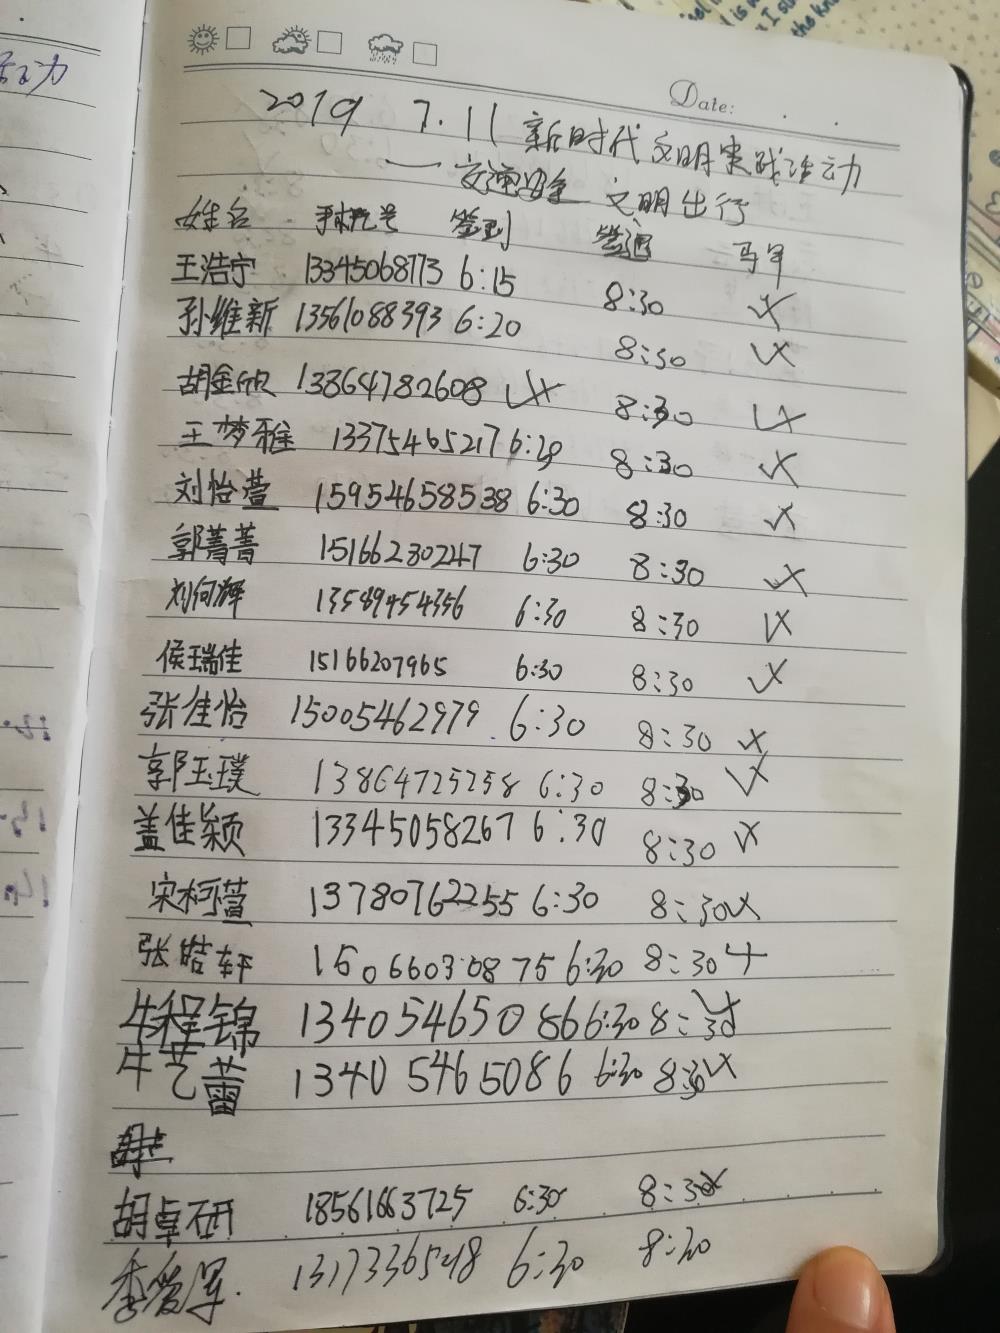 Date:
2019 7.11 新时代文明实践活动
——交通安全 文明出行
姓名 手机号 签到 签退 马甲
王浩宁 13345068773 6:15 8:30
孙维新 13561088393 6:20 8:30
胡金欣 13864782608 8:30
王梦雅 13375465217 6:29 8:30
刘怡萱 15954658538 6:30 8:30
郭菁菁 15166280247 6:30 8:30
刘向辉 13589954356 6:30 8:30
侯瑞佳 15166207965 6:30 8:30
张佳怡 15005462979 6:30 8:30
郭玉璞 13864725258 6:30 8:30
盖佳颖 13345058267 6:30 8:30
宋柯萱 13780762255 6:30 8:30
张皓轩 15066030875 6:30 8:30
牛程锦 13405465086 6:30 8:30
牛艺蕾 13405465086 6:30 8:30
胡卓研 18561663725 6:30 8:30
李爱军 6:30 8:30